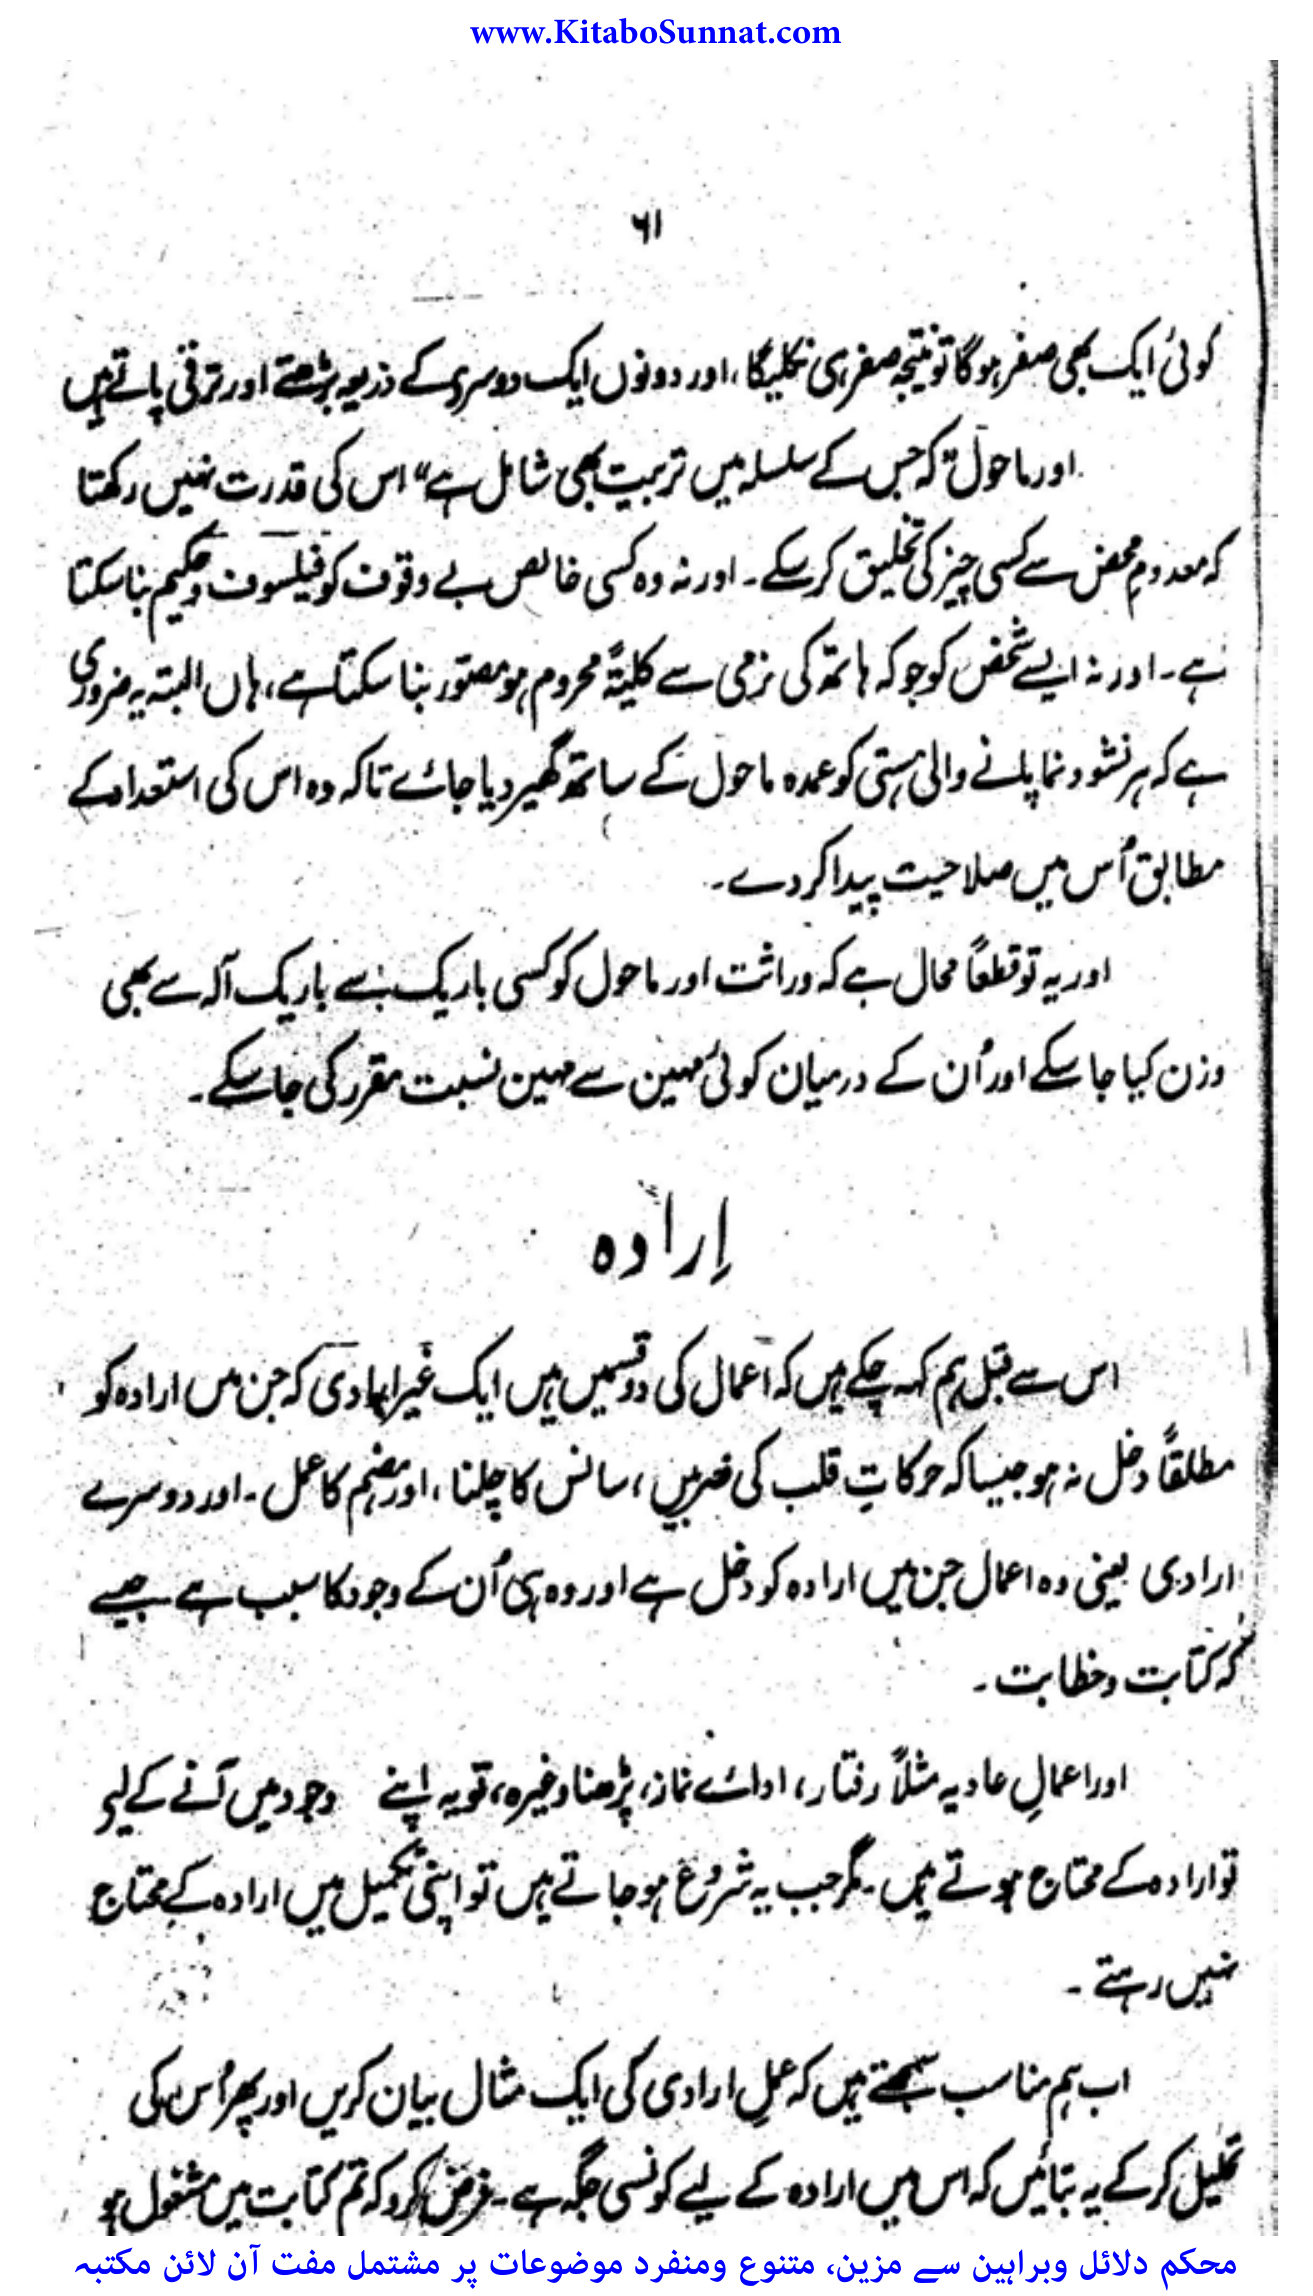 www.KitaboSunnat.com
۶۱
کوئی ایک بھی صفر ہوگا تو نتیجہ صفر ہی نکلیگا، اور دونوں ایک دوسرے کے ذریعہ بڑھتے اور ترقی پاتے ہیں
اور ماحول" کہ جس کے سلسلہ میں تربیت بھی شامل ہے" اس کی قدرت نہیں رکھتا
کہ معدومِ محض سے کسی چیز کی تخلیق کر سکے۔ اور نہ وہ کسی خالص بے وقوف کو فیلسوف و حکیم بنا سکتا
ہے۔ اور نہ ایسے شخص کو جو کہ ہاتھ کی نرمی سے کلیتہً محروم ہو مصوّر بنا سکتا ہے، ہاں البتہ یہ ضروری
ہے کہ ہر نشوونما پانے والی ہستی کو عمدہ ماحول کے ساتھ گھیر دیا جائے تاکہ وہ اس کی استعداد کے
مطابق اُس میں صلاحیت پیدا کر دے۔
اور یہ تو قطعاً محال ہے کہ وراثت اور ماحول کو کسی باریک سے باریک آلہ سے بھی
وزن کیا جا سکے اور اُن کے درمیان کوئی مہین سے مہین نسبت مقرر کی جا سکے۔
اِرادہ
اس سے قبل ہم کہہ چکے ہیں کہ اعمال کی دو قسمیں ہیں ایک غیر ارادی کہ جن میں ارادہ کو
مطلقاً دخل نہ ہو جیسا کہ حرکاتِ قلب کی ضربیں، سانس کا چلنا، اور ہضم کا عمل۔ اور دوسرے
ارادی یعنی وہ اعمال جن میں ارادہ کو دخل ہے اور وہ ہی اُن کے وجود کا سبب ہے جیسے
کہ کتابت و خطابت۔
اور اعمالِ عادیہ مثلاً رفتار، ادائے نماز، پڑھنا وغیرہ، تو یہ اپنے وجود میں آنے کے لیے
تو ارادہ کے محتاج ہوتے ہیں۔ مگر جب یہ شروع ہو جاتے ہیں تو اپنی تکمیل میں ارادہ کے محتاج
نہیں رہتے۔
اب ہم مناسب سمجھتے ہیں کہ عملِ ارادی کی ایک مثال بیان کریں اور پھر اُس کی
تحلیل کر کے یہ بتائیں کہ اس میں ارادہ کے لیے کونسی جگہ ہے۔ فرض کرو کہ تم کتابت میں مشغول ہو
محکم دلائل وبراہین سے مزین، متنوع ومنفرد موضوعات پر مشتمل مفت آن لائن مکتبہ